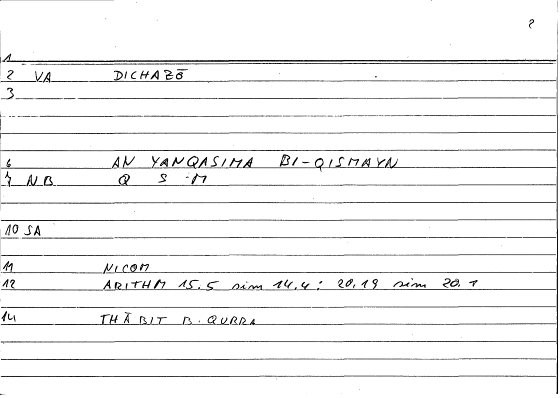 2
1
2 VA DICHAZŌ
3
6 AN YANQASIMA BI-QISMAYN
7 NB Q S M
10 SA
11 NICOM
12 ARITHM 15.5 sim 14.4; 20.19 sim 20.1
14 THĀBIT B. QURRA